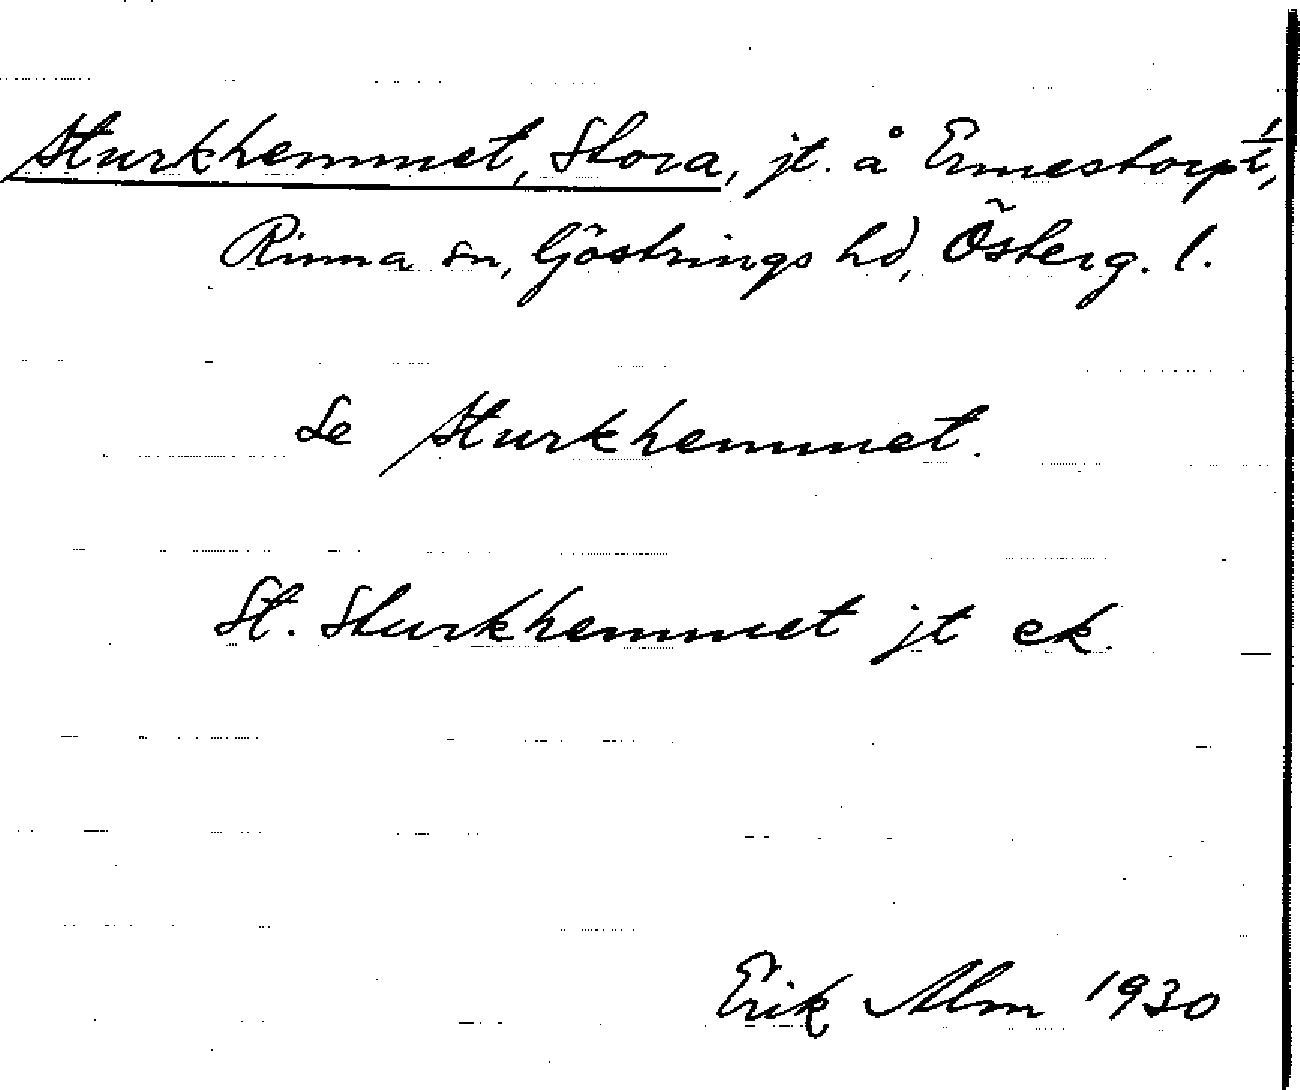 Sturkhemmet, Stora, jt. å Ernestorp 1/1,
Rinna sn, Göstrings hd, Österg. l.
Se Sturkhemmet.
St. Sturkhemmet jt ek.
Erik Alm 1930